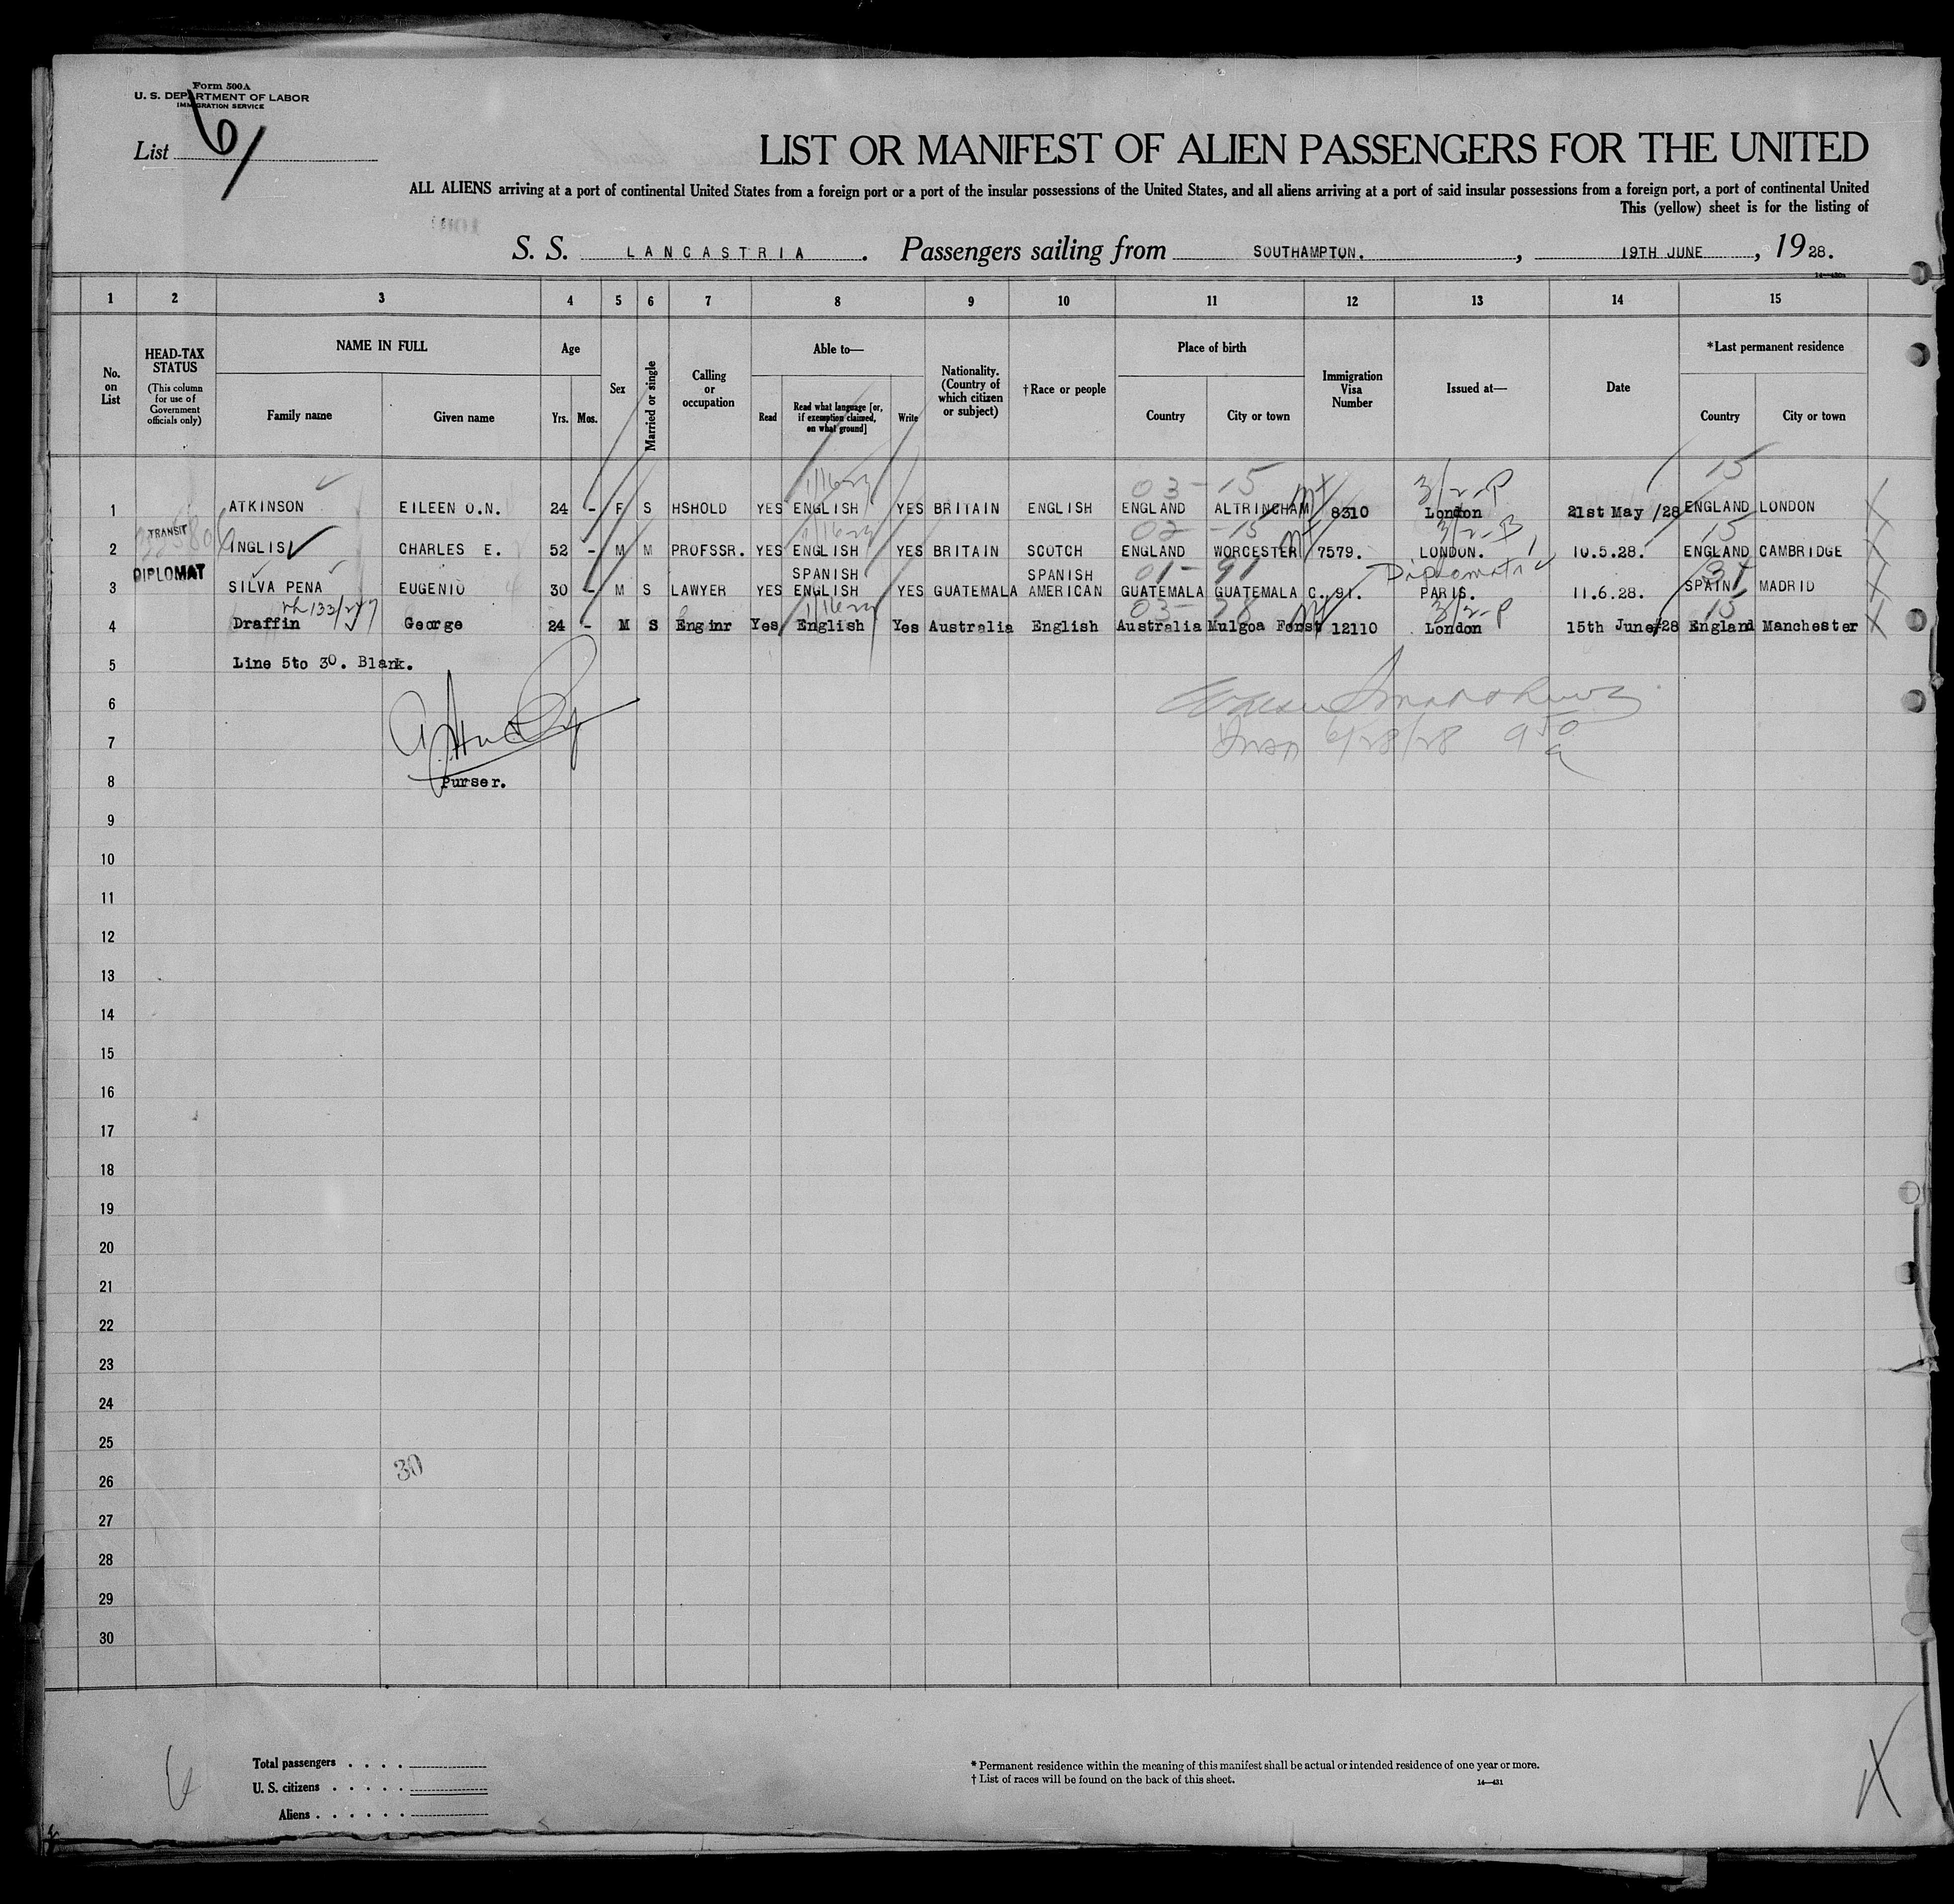 Form 500A
U. S. DEPARTMENT OF LABOR
IMMIGRATION SERVICE
List 6
LIST OR MANIFEST OF ALIEN PASSENGERS FOR THE UNITED
ALL ALIENS arriving at a port of continental United States from a foreign port or a port of the insular possessions of the United States, and all aliens arriving at a port of said insular possessions from a foreign port, a port of continental United
This (yellow) sheet is for the listing of
S. S. LANCASTRIA. Passengers sailing from SOUTHAMPTON., 19TH JUNE, 1928.
14—430a
1 2 3 4 5 6 7 8 9 10 11 12 13 14 15
No. on List
HEAD-TAX STATUS
(This column for use of Government officials only)
NAME IN FULL
Family name Given name
Age
Yrs. Mos.
Sex
Married or single
Calling or occupation
Able to—
Read Read what language [or, if exemption claimed, on what ground] Write
Nationality. (Country of which citizen or subject)
†Race or people
Place of birth
Country City or town
Immigration Visa Number
Issued at—
Date
*Last permanent residence
Country City or town
03-15 3/2-P 15
1 ATKINSON EILEEN O.N. 24 - F S HSHOLD YES ENGLISH YES BRITAIN ENGLISH ENGLAND ALTRINCHAM 8310 London 21st May /28 ENGLAND LONDON
TRANSIT 02-15 3/2-B 15
2 INGLIS CHARLES E. 52 - M M PROFSSR. YES ENGLISH YES BRITAIN SCOTCH ENGLAND WORCESTER 7579. LONDON. 10.5.28. ENGLAND CAMBRIDGE
DIPLOMAT SPANISH SPANISH 01-91 Diplomatic 31
3 SILVA PENA EUGENIO 30 - M S LAWYER YES ENGLISH YES GUATEMALA AMERICAN GUATEMALA GUATEMALA C. 91. PARIS. 11.6.28. SPAIN MADRID
133/247 03-78 3/2-P 15
4 Draffin George 24 - M S Enginr Yes English Yes Australia English Australia Mulgoa Forst 12110 London 15th June/28 England Manchester
5 Line 5to 30. Blank.
6
7 6/28/28 9 50 a
8 Purser.
9
10
11
12
13
14
15
16
17
18
19
20
21
22
23
24
25
26 30
27
28
29
30
6
Total passengers
U. S. citizens
Aliens
* Permanent residence within the meaning of this manifest shall be actual or intended residence of one year or more.
† List of races will be found on the back of this sheet.
14—431
X